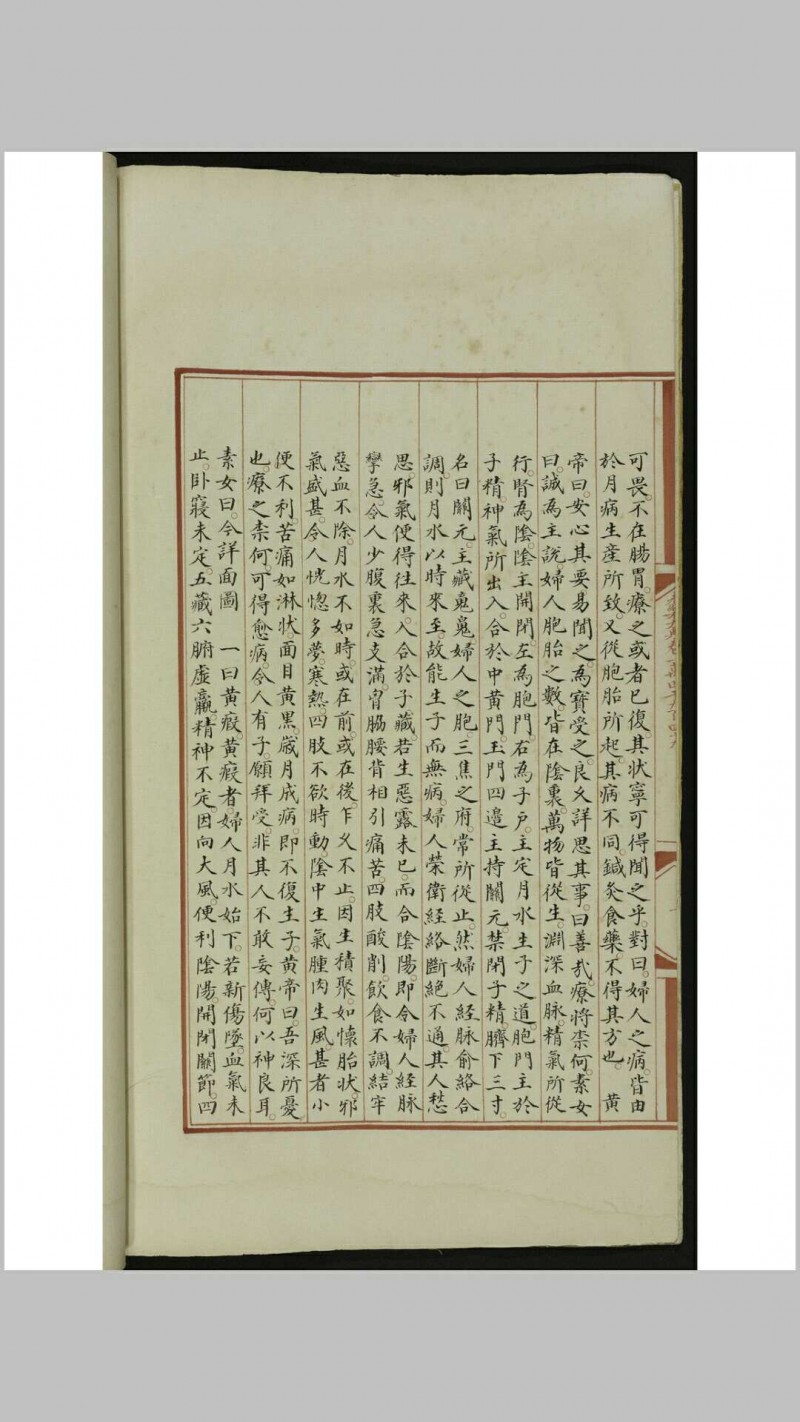 可畏。不在腸胃。療之或者已復。其狀寧可得聞之乎。對曰。婦人之病。皆由
於月病生產所致。又從胞胎所起。其病不同。鍼灸食藥。不得其方也。 黃
帝曰。安心其要。易聞之。為寶受之。良久詳思其事。曰善哉。療將柰何。素女
曰。誠為主說。婦人胞胎之數。皆在陰裏。萬物皆從生。淵深血脉。精氣所從
行。腎為陰。陰主開閉。左為胞門。右為子戶。主定月水。生子之道。胞門主於
子精。神氣所出入。合於中黃門。玉門四邊。主持關元。禁閉子精。臍下三寸。
名曰關元。主藏䰟䰟。婦人之胞。三焦之府。常所從止。然婦人經脉俞絡合
調。則月水以時來至。故能生子而無病。婦人榮衛經絡斷絕不通。其人愁
思。邪氣便得往來。入合於子藏。若生惡露未已。而合陰陽。即令婦人經脉
攣急。令人少腹裏急支滿。胷脇腰背相引痛苦。四肢酸削。飲食不調。結牢
惡血不除。月水不如時。或在前。或在後。乍乂不止。因生積聚。如懷胎狀。邪
氣盛甚。令人恍惚多夢。寒熱。四肢不欲時動。陰中生氣。腫肉生風。甚者小
便不利。苦痛如淋狀。面目黃黑。歲月成病。即不復生子。黃帝曰。吾深所憂
也。療之柰何。可得愈病。令人有子。願拜受。非其人不敢妄傳。何以神良耳。
素女曰。今詳面圖 一曰黃瘕。黃瘕者。婦人月水始下。若新傷墜。血氣未
止。卧寢未定。五藏六腑虛羸。精神不定。因向大風便利。陰陽開閉。關節。四